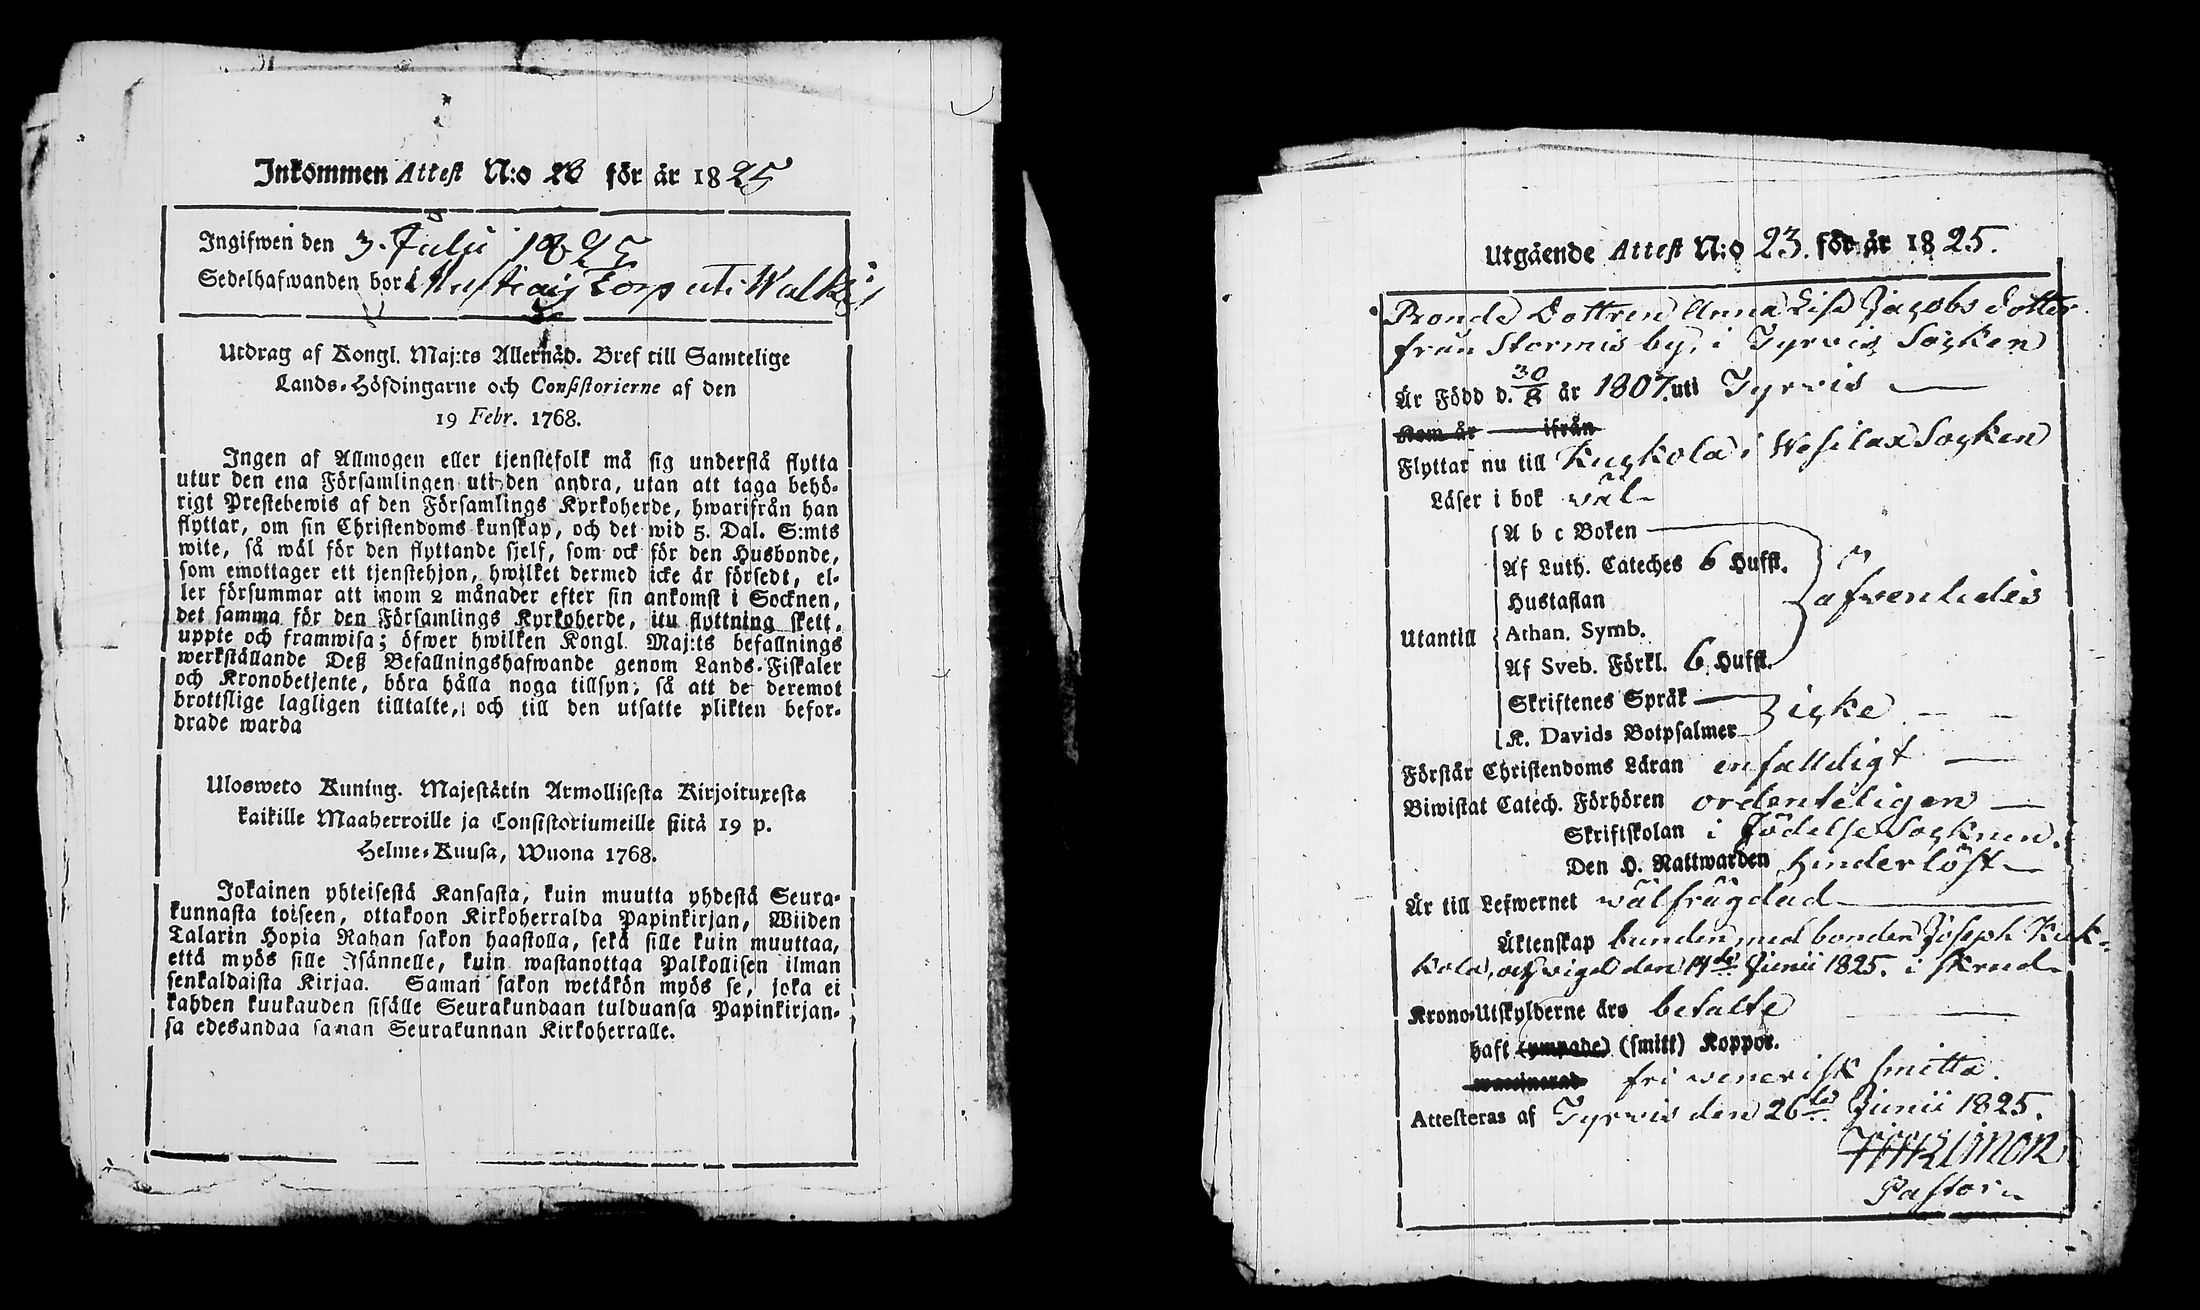 Inkommen Attest N:o 28 för år 1825
Ingifwen den 3. Julii 1825
Sedelhafwanden bor i
Utdrag af Kongl. Maj:ts Allernåd. Bref till Samtelige
Lands-Höfdingarne och Consistorierne af den
19 Febr. 1768.
Ingen af Allmogen eller tjenstefolk må sig understå flytta
utur den ena Församlingen uti den andra, utan att taga behö-
rigt Prestebewis af den Församlings Kyrkoherde, hwarifrån han
flyttar, om sin Christendoms kunskap, och det wid 5. Dal. S:mts
wite, så wäl för den flyttande sjelf, som ock för den Husbonde,
som emottager ett tjenstehjon, hwilket dermed icke är försedt, el-
ler försummar att inom 2 månader efter sin ankomst i Socknen,
det samma för den Församlings Kyrkoherde, itu flyttning skett,
uppte och framwisa; öfwer hwilken Kongl. Maj:ts befallnings
werkställande Deß Befallningshafwande genom Lands-Fiskaler
och Kronobetjente, böra hålla noga tillsyn; så att de deremot
brottslige lagligen tilltalte, och till den utsatte plikten befor-
drade warda
Ulosweto Kuning. Majestätin Armollisesta Kirjoituxesta
kaikille Maaherroille ja Consistoriumeille siitä 19 p.
Helme-Kuusa, Wuona 1768.
Jokainen yhteisestä Kansasta, kuin muutta yhdestä Seura-
kunnasta toiseen, ottakoon Kirkoherralda Papinkirjan, Wiiden
Talarin Hopia Rahan sakon haastolla, sekä sille kuin muuttaa,
että myös sille Isännelle, kuin wastanottaa Palkollisen ilman
senkaldaista Kirjaa. Saman sakon wetäkön myös se, joka ei
kahden kuukauden sisälle Seurakundaan tulduansa Papinkirjan-
sa edesandaa saman Seurakunnan Kirkoherralle.
Utgående Attest N:o 23. för år 1825.
Bonde Dottren Anna Lisa Jacobs dotter
från Stormis by, i Tyrvis Socken
Är Född d. 30/8 år 1807. uti Tyrvis
Kom år ifrån
Flyttar nu till Kuckola i Wesilax Socken
Läser i bok wäl
A b c Boken
Af Luth. Cateches 6 Hufst.
Hustaflan
äfvenledes
Utantill Athan. Symb.
Af Sveb. Förkl. 6 Hufst.
Skriftenes Språk
icke
K. Davids Botpsalmer
Förstår Christendoms Läran enfalldigt
Biwistat Catech. Förhören ordenteligen
Skriftskolan i födelse Socknen.
Den H. Nattwarden hinderlöst
Är till Lefwernet wälfrägdad
Äktenskap bunden med bonden Joseph Kuk-
kola, och vigd den 14de Junii 1825. i skrud
Krono-Utskylderne äro betalte
haft (ympade) (smitt) Koppor.
waccinerad fri venerisk smitta.
Attesteras af Tyrvis den 26te Junii 1825.
Pastor